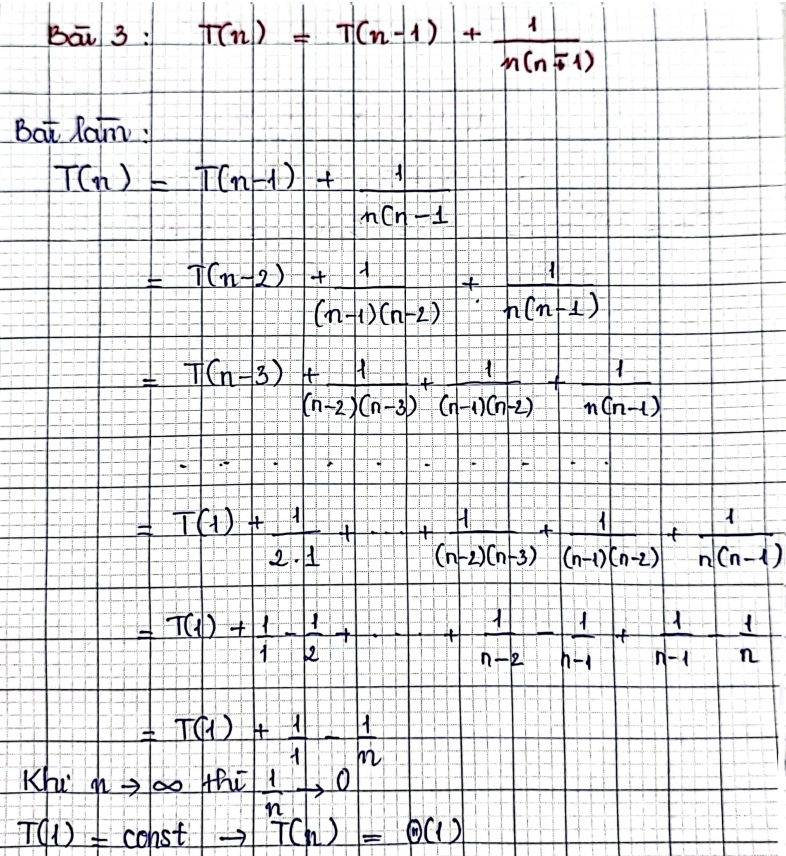 Bài 3 : T(n) = T(n-1) + 1/n(n-1)
Bài làm :
T(n) = T(n-1) + 1/n(n-1
= T(n-2) + 1/(n-1)(n-2) + 1/n(n-1)
= T(n-3) + 1/(n-2)(n-3) + 1/(n-1)(n-2) + 1/n(n-1)
. . . . . . . . .
= T(1) + 1/2.1 + .... + 1/(n-2)(n-3) + 1/(n-1)(n-2) + 1/n(n-1)
= T(1) + 1/1 - 1/2 + ..... + 1/n-2 - 1/n-1 + 1/n-1 - 1/n
= T(1) + 1/1 - 1/n
Khi n → ∞ thì 1/n → 0
T(1) = const → T(n) = Θ(1)